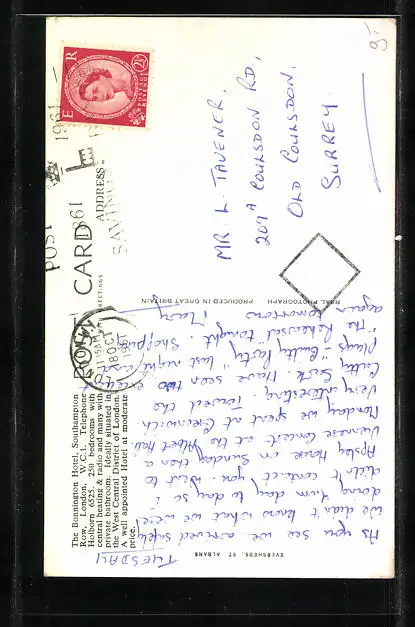 The Bonnington Hotel, Southampton
Row, London, W.C.1. Telephone
Holborn 6525. 250 bedrooms with
central heating & radio and many with
private bathroom. Ideally situated in
the West Central District of London.
A well appointed Hotel at moderate
price.
POST CARD
ADDRESS
GREETINGS
E R
2½D
POSTAGE
REVENUE
1961
POST
SAVINGS
18 OCT
1961
MR L. TAVENER,
207A COULSDON RD,
OLD COULSDON.
SURREY.
REAL PHOTOGRAPH PRODUCED IN GREAT BRITAIN
EVERSHEDS, ST ALBANS
TUESDAY
As you see we arrived safely
We didn't know what we were
doing from day to day so I
didn't contact you. Went to
Apsley House on Sunday then a
Viennese Concert at the Albert Hall.
Monday we spent at Greenwich
Very interesting. Toured the
Cutty Sark. Have seen two
plays "Guilty Party" last night and
"The Rehearsal" tonight. Shopping
again tomorrow
Mary
9/-